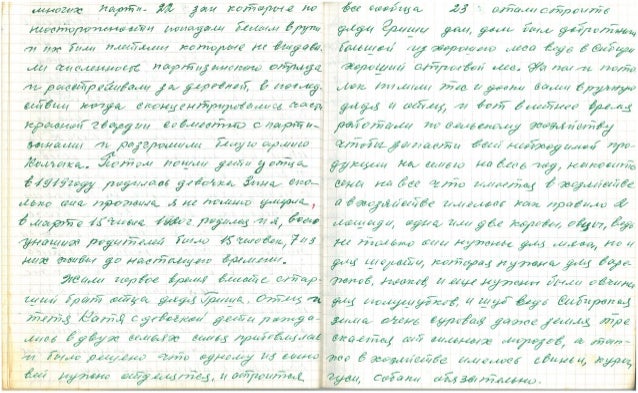 многих парти- 22 зан которые по
неосторожности попадали белым в руки
и их били плетями которые не выдава
ли численность партизанского отряда
и расстреливали за деревней, в после
ствии когда сконцентрировались части
красной гвардии совместно с парти-
занами и разгромили белую армию
Колчака. Потом пошли дети у отца
в 1919 году родилась девочка Зина ско-
лько она прожила я не помню умерла,
в марте 15 числа 1920 г. родился и я, всего
у наших родителей было 15 человек, 7 из
них живы до настоящего времени.
Жили первое время вместе стар-
ший брат отца дядя Гриша. Отец и
тетя Катя с девочкой дети рожда-
лись в двух семьях семья прибавлялась
и было решено что одному из сыно
вей нужно отделятся, и строится
все сообща 23 стали строить
дяди Гриши дом, дом был добротный
большой из хорошего леса ведь в Сибири
хороший строевой лес. На пол и пото
лок пилили тес и доски сами в ручную
дядя и отец, и вот в летнее время
работали по сельскому хозяйству
чтобы запасти всей необходимой про-
дукции на семью на весь год, накосить
сена на все что имеется в хозяйстве
а в хозяйстве имелось как правило 2
лошади, одна или две коровы, овцы, ведь
не только они нужны для мяса, но и
для шерсти, которая нужна для варе
жков, носков, и еще нужны были овчины
для полушубков, и шуб ведь Сибирская
зима очень суровая даже земля тре
скается от сильных морозов, а так-
же в хозяйстве имелось свиньи, куры,
гуси, собаки обязательно.